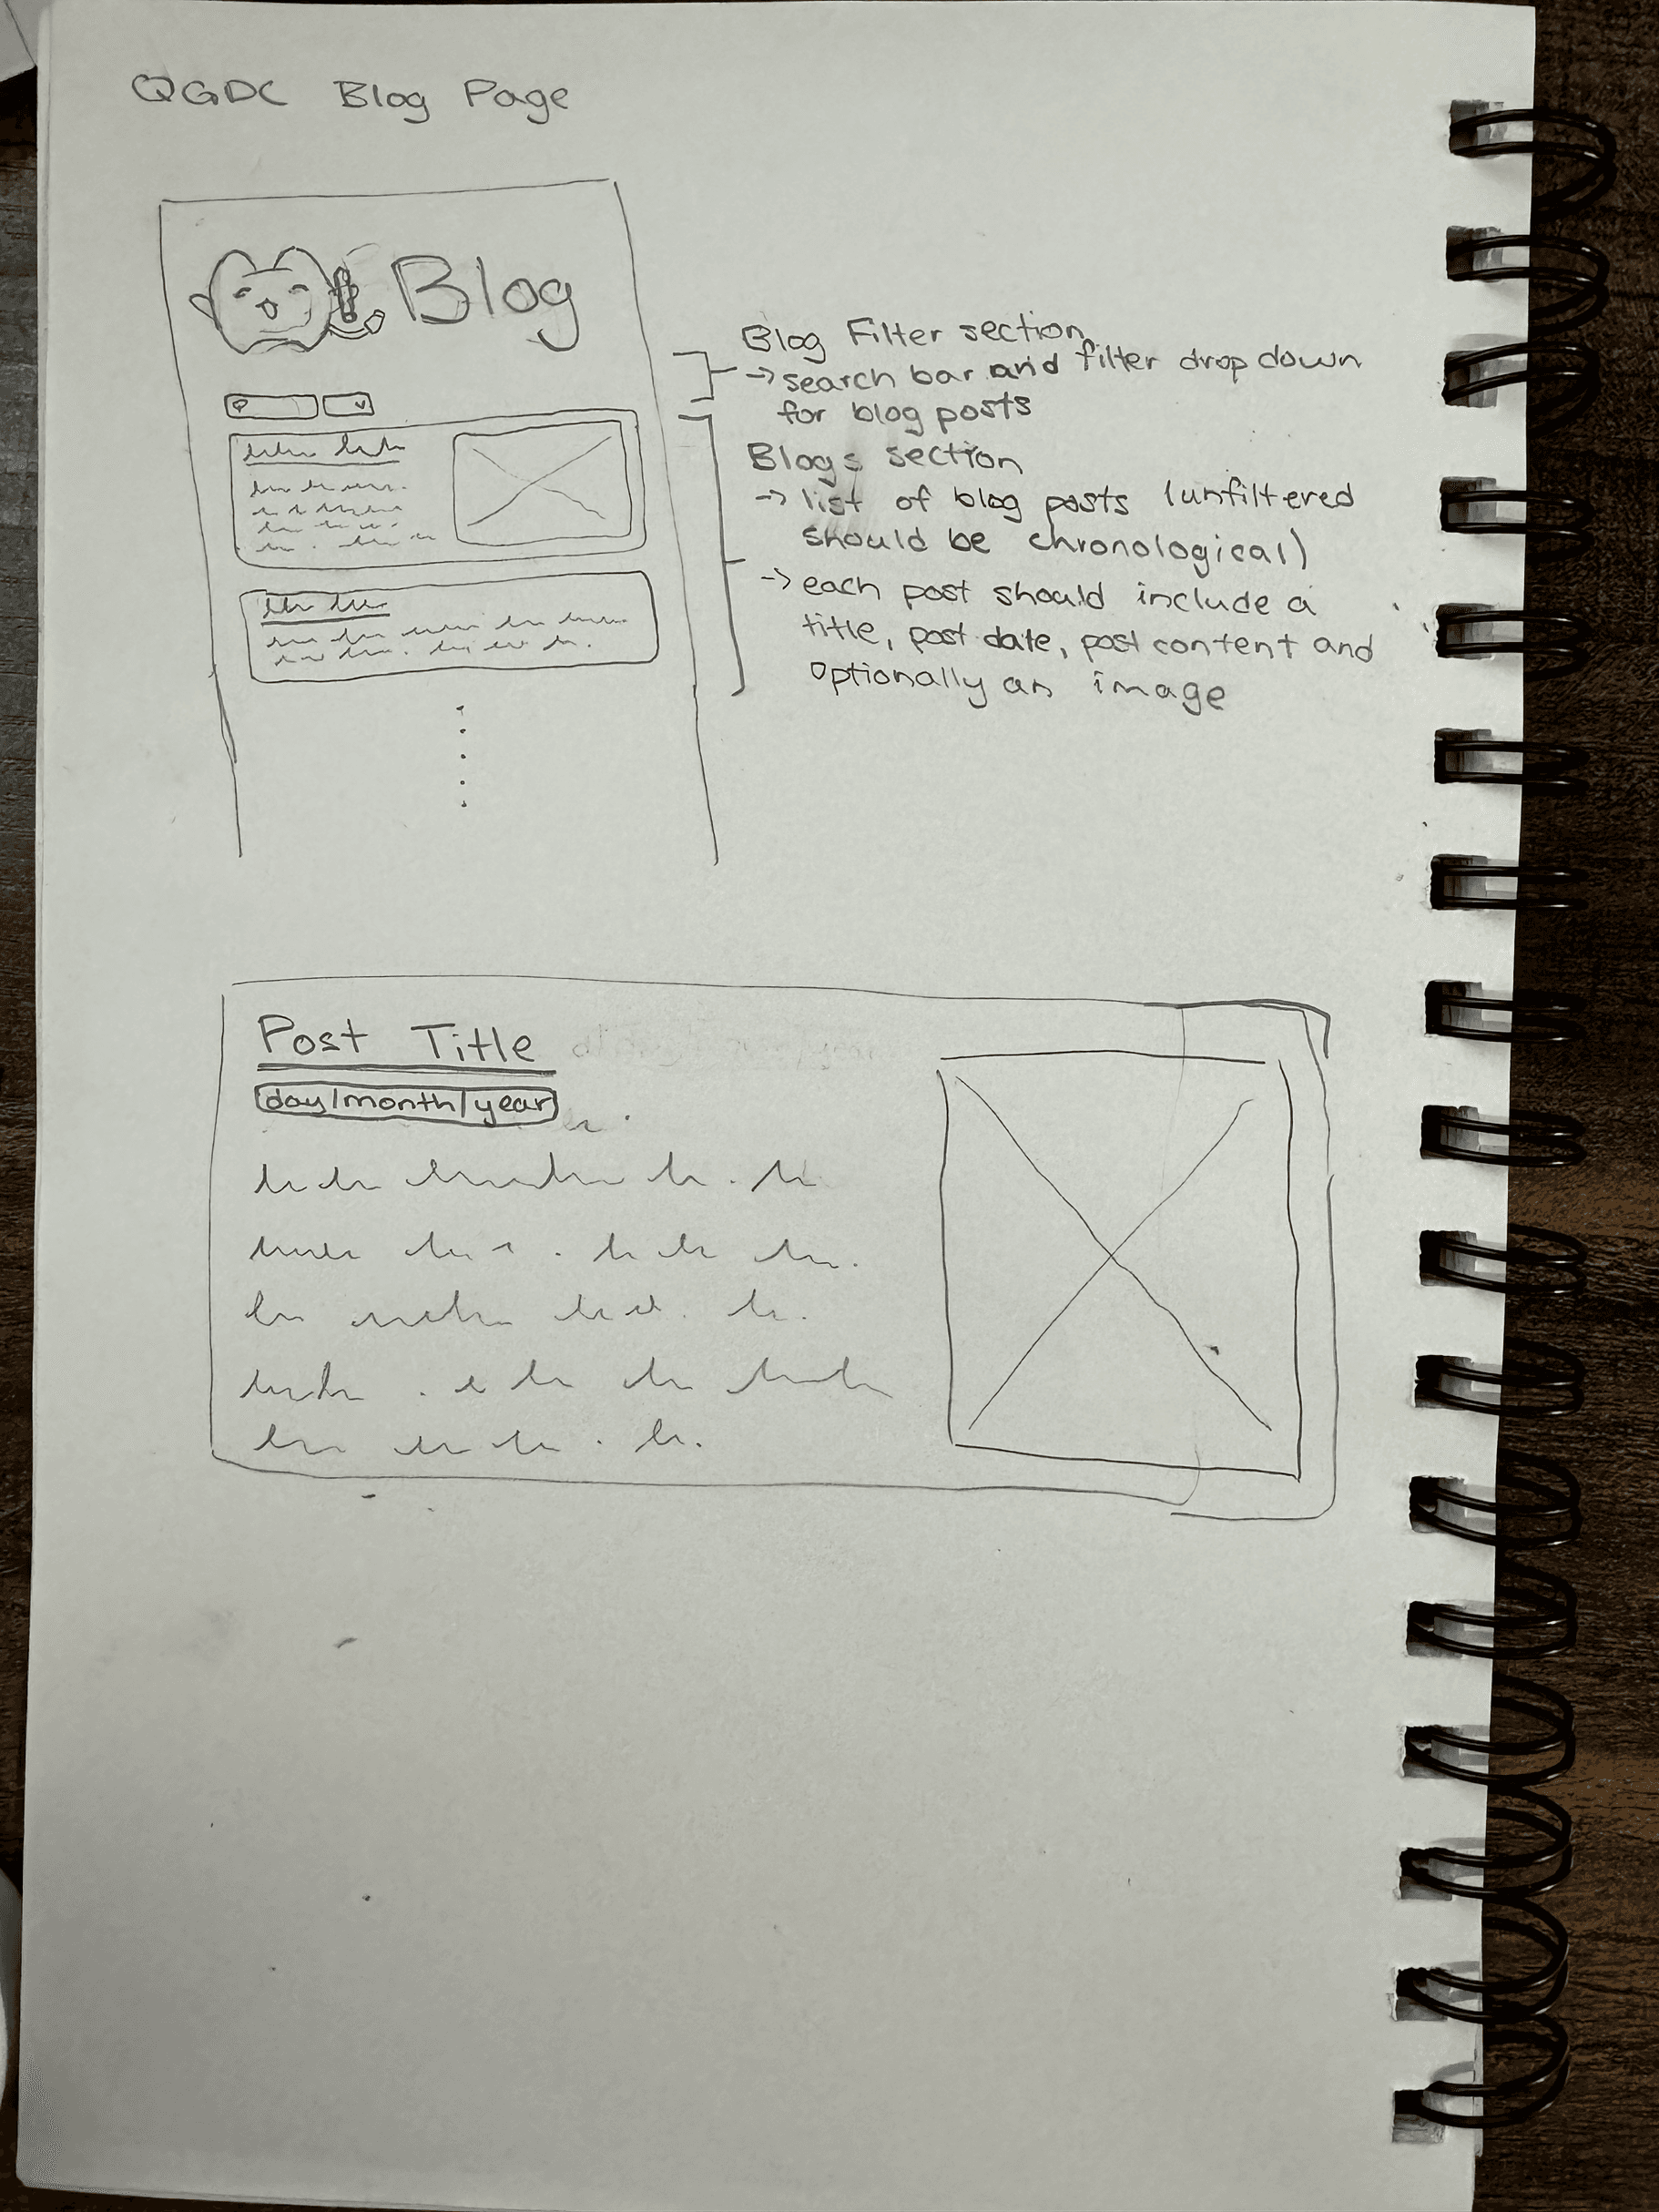 QGDC Blog Page
Blog
Blog Filter section
-> search bar and filter drop down
for blog posts
Blogs section
-> list of blog posts (unfiltered
should be chronological)
-> each post should include a
title, post date, post content and
Optionally an image
Post Title
day/month/year